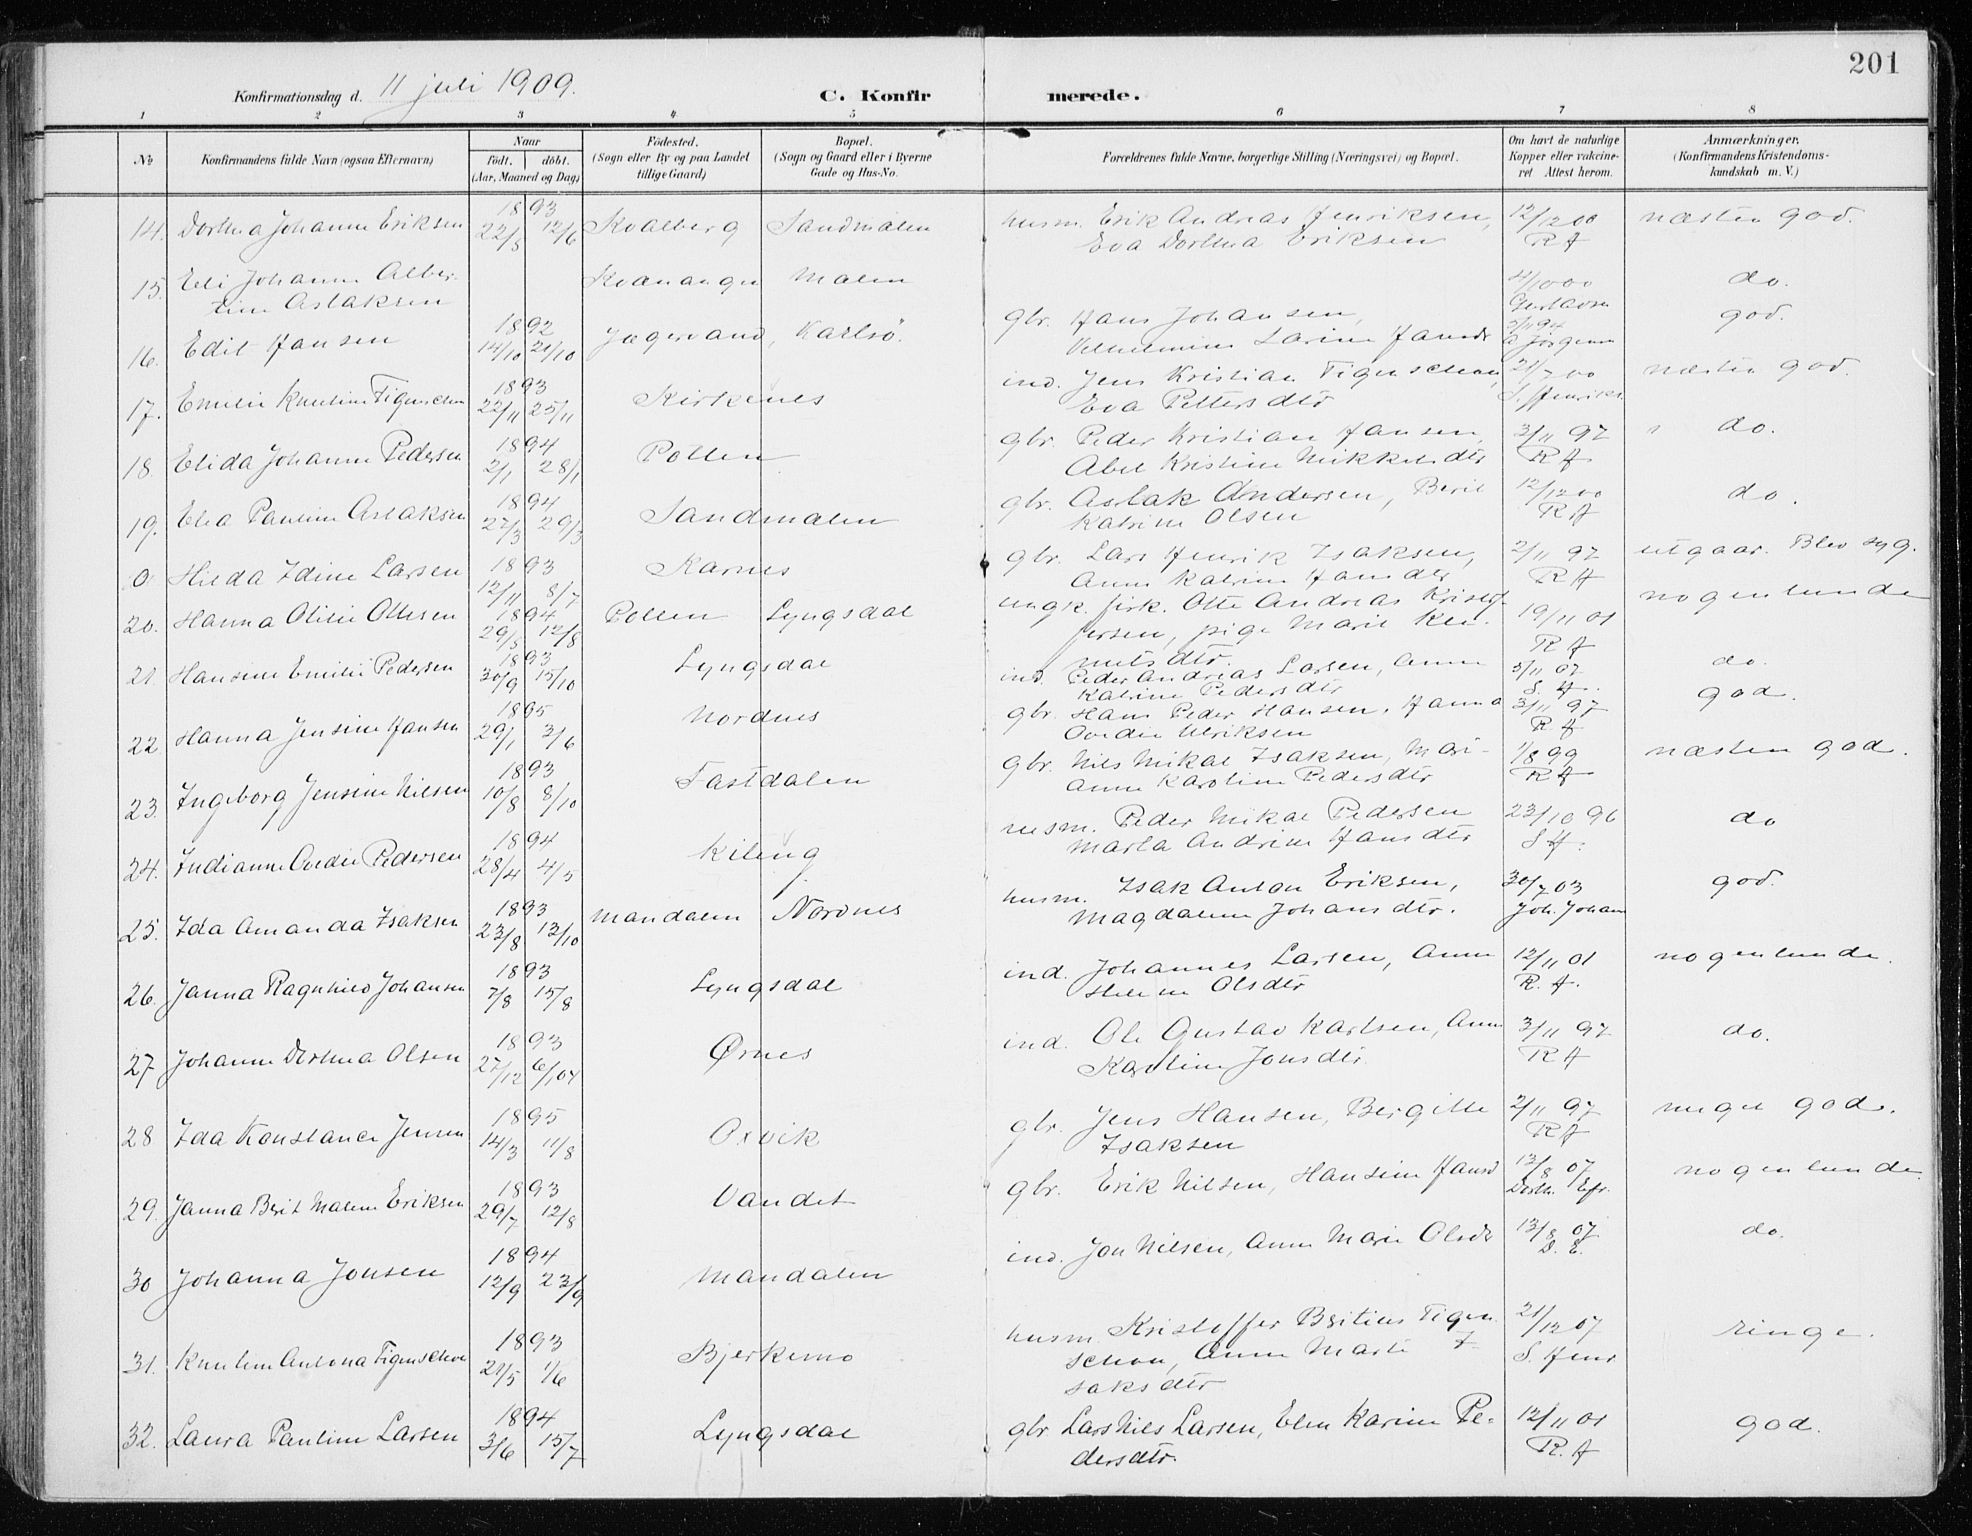 201
Konfirmationsdag d. 11 juli 1909.
C. Konfirmerede.
1 2 3 4 5 6 7 8
No
Konfirmandens fulde Navn (ogsaa Efternavn)
Naar
Födt. döbt.
(Aar, Maaned og Dag)
Födested.
(Sogn eller By og paa Landet
tillige Gaard)
Bopæl.
(Sogn og Gaard eller i Byerne
Gade og Hus-No.
Forældrenes fulde Navne, borgerlige Stilling (Næringsvei) og Bopæl.
Om havt de naturlige
Kopper eller vakcine-
ret Attest herom.
Anmærkninger.
(Konfirmandens Kristendoms-
kundskab m. V.)
14. Dorthea Johanne Eriksen 1893 22/5 12/6 Kvalberg Sandmalen husm. Erik Andreas Henriksen, 12/12 00 næsten god.
Eva Dorthea Eriksen R H
15. Eli Johanne Alber- Kvænangen Malen 4/10 00 do.
tine Aslaksen
16. Edit Hansen 1892 14/10 21/10 Jægervand, Karlsö. gbr. Hans Johansen, god.
Vilhelmine Larine Hansdr
17. Emilie Knutine Figenschou 1893 22/11 25/11 Kirkenes ind. Jens Kristian Figenschou, 21/7 00 næsten god.
Eva Pettersdtr S. Henriks.
18. Elida Johanne Pedersen 1894 2/1 28/1 Pollen gbr. Peder Kristian Hansen, 3/11 97 do.
Abel Kristine Mikkelsdtr R H
19. Elea Pauline Aslaksen 1894 27/3 29/3 Sandmalen gbr. Aslak Andersen, Beril 12/12 00 do.
Katrine Olsen R H
0 Hilda Idine Larsen 1893 12/11 8/7 Karnes gbr. Lars Henrik Isaksen, 2/11 97 utgaar. Blev syg.
Anne Katrine Hansdtr R H
20. Hanna Olilie Ottesen 1894 29/5 12/8 Pollen Lyngsdal ungk. fisk. Otte Andreas Kristof- 19/11 01 nogenlunde
fersen, pige Marit Kle-
metsdtr. R H
21. Hansine Emilie Pedersen 1893 30/9 15/10 Lyngsdal ind. Peder Andreas Larsen, Anne 5/11 07 do.
Katrine Pedersdtr S. H.
22 Hanna Jensine Hansen 1895 29/1 3/6 Nordnes gbr. Hans Peder Hansen, Hanna 3/11 97 god.
Ovedie Ulriksen R H
23. Ingeborg Jensine Nilsen 1893 10/8 8/10 Fastdalen gbr. Nils Mikal Isaksen, Mari- 1/8 99 næsten god.
anne Karoline Pedersdtr R H
24. Indianne Ovedie Pedersen 1894 28/4 4/5 Kileng husm. Peder Mikal Pedersen 23/10 96 do
Marta Andrine Hansdtr S H.
25. Ida Amanda Isaksen 1893 23/8 13/10 Mandalen Nordnes husm. Isak Anton Eriksen, 30/7 03 god.
Magdalene Johansdtr. Joh. Johans
26. Janna Ragnhild Johansen 1893 7/8 15/8 Lyngsdal ind. Johannes Larsen, Anne 12/11 01 nogenlunde.
Helene Olsdtr R. H.
27 Johanne Dorthea Olsen 1893 27/12 6/1 04 Ørnes ind. Ole Gustav Karlsen, Anne 3/11 97 do.
Karoline Jonsdtr. R H
28 Ida Konstance Jensen 1895 14/3 11/8 Oxvik gbr. Jens Hansen, Bergitte 2/11 97 meget god.
Isaksen R H
29. Janna Berit Malene Eriksen 1893 29/7 12/8 Vandet gbr. Erik Nilsen, Hansine Hansd 13/8 07 nogenlunde
Dorth. Efr.
30 Johanna Jonsen 1894 12/9 23/9 Mandalen ind. Jon Nilsen, Anne Marie Olsdr 13/8 07 do.
D. E.
31. Knutine Antona Figenschou 1893 21/5 1/6 Bjerkemo husm. Kristoffer Beritius Figen- 21/12 07 ringe.
schou, Anne Marte I-
saksdtr S. Henr
32. Laura Pauline Larsen 1894 3/6 15/7 Lyngsdal gbr Lars Nils Larsen, Elen Karine Pe- 12/11 01 god.
dersdtr. R. H